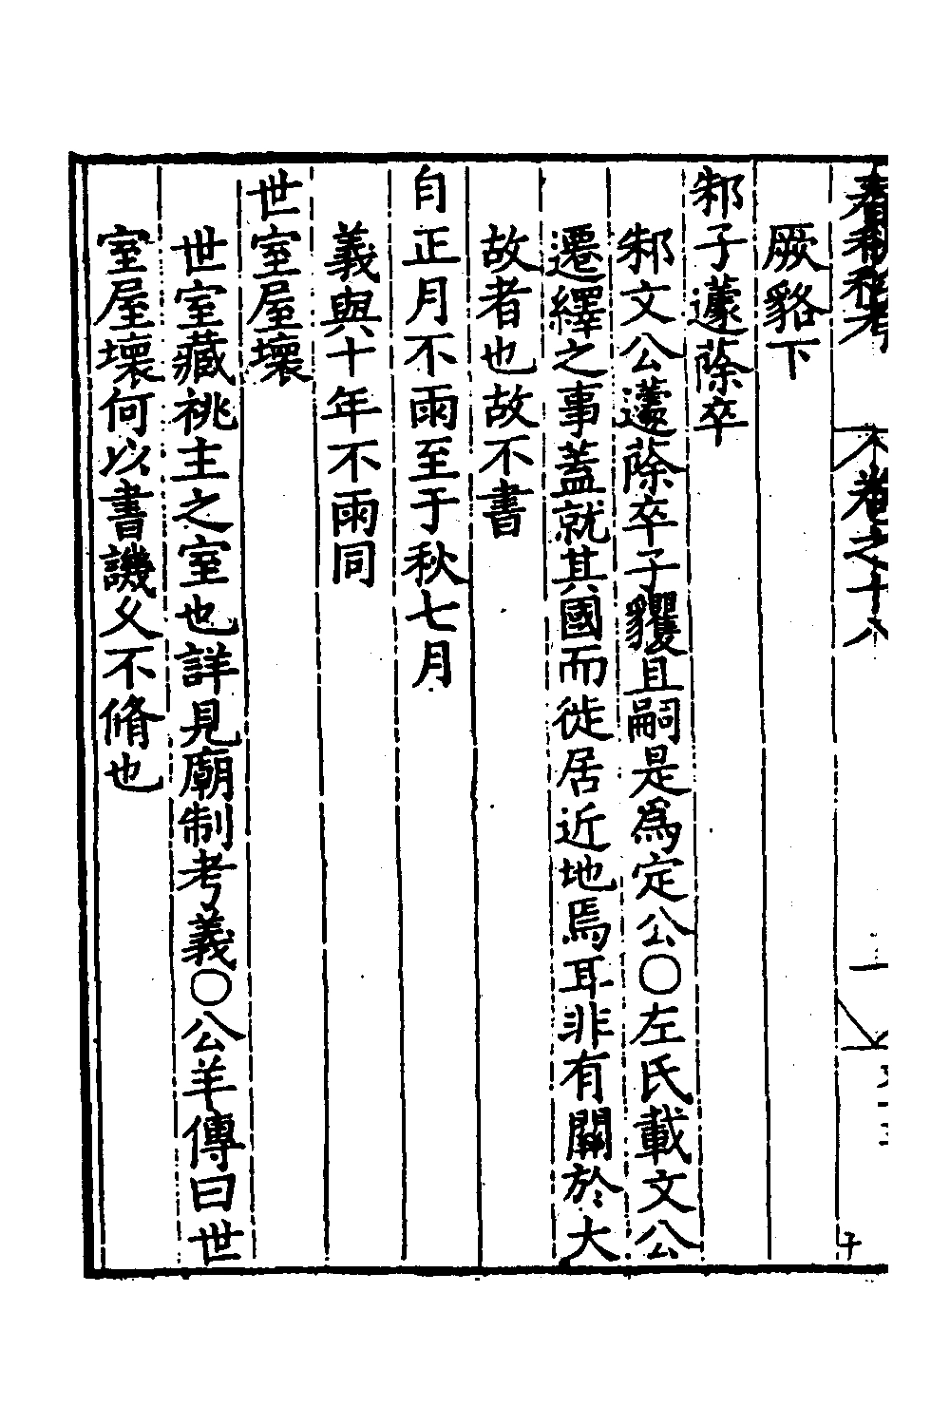 春秋私考 卷之十八
厥貉下
邾子蘧蒢卒
邾文公蘧蒢卒子貜且嗣是爲定公○左氏載文公
遷繹之事蓋就其國而徙居近地焉耳非有關於大
故者也故不書
自正月不雨至于秋七月
義與十年不雨同
世室屋壞
世室藏祧主之室也詳見廟制考義○公羊傳曰世
室屋壞何以書譏乆不脩也